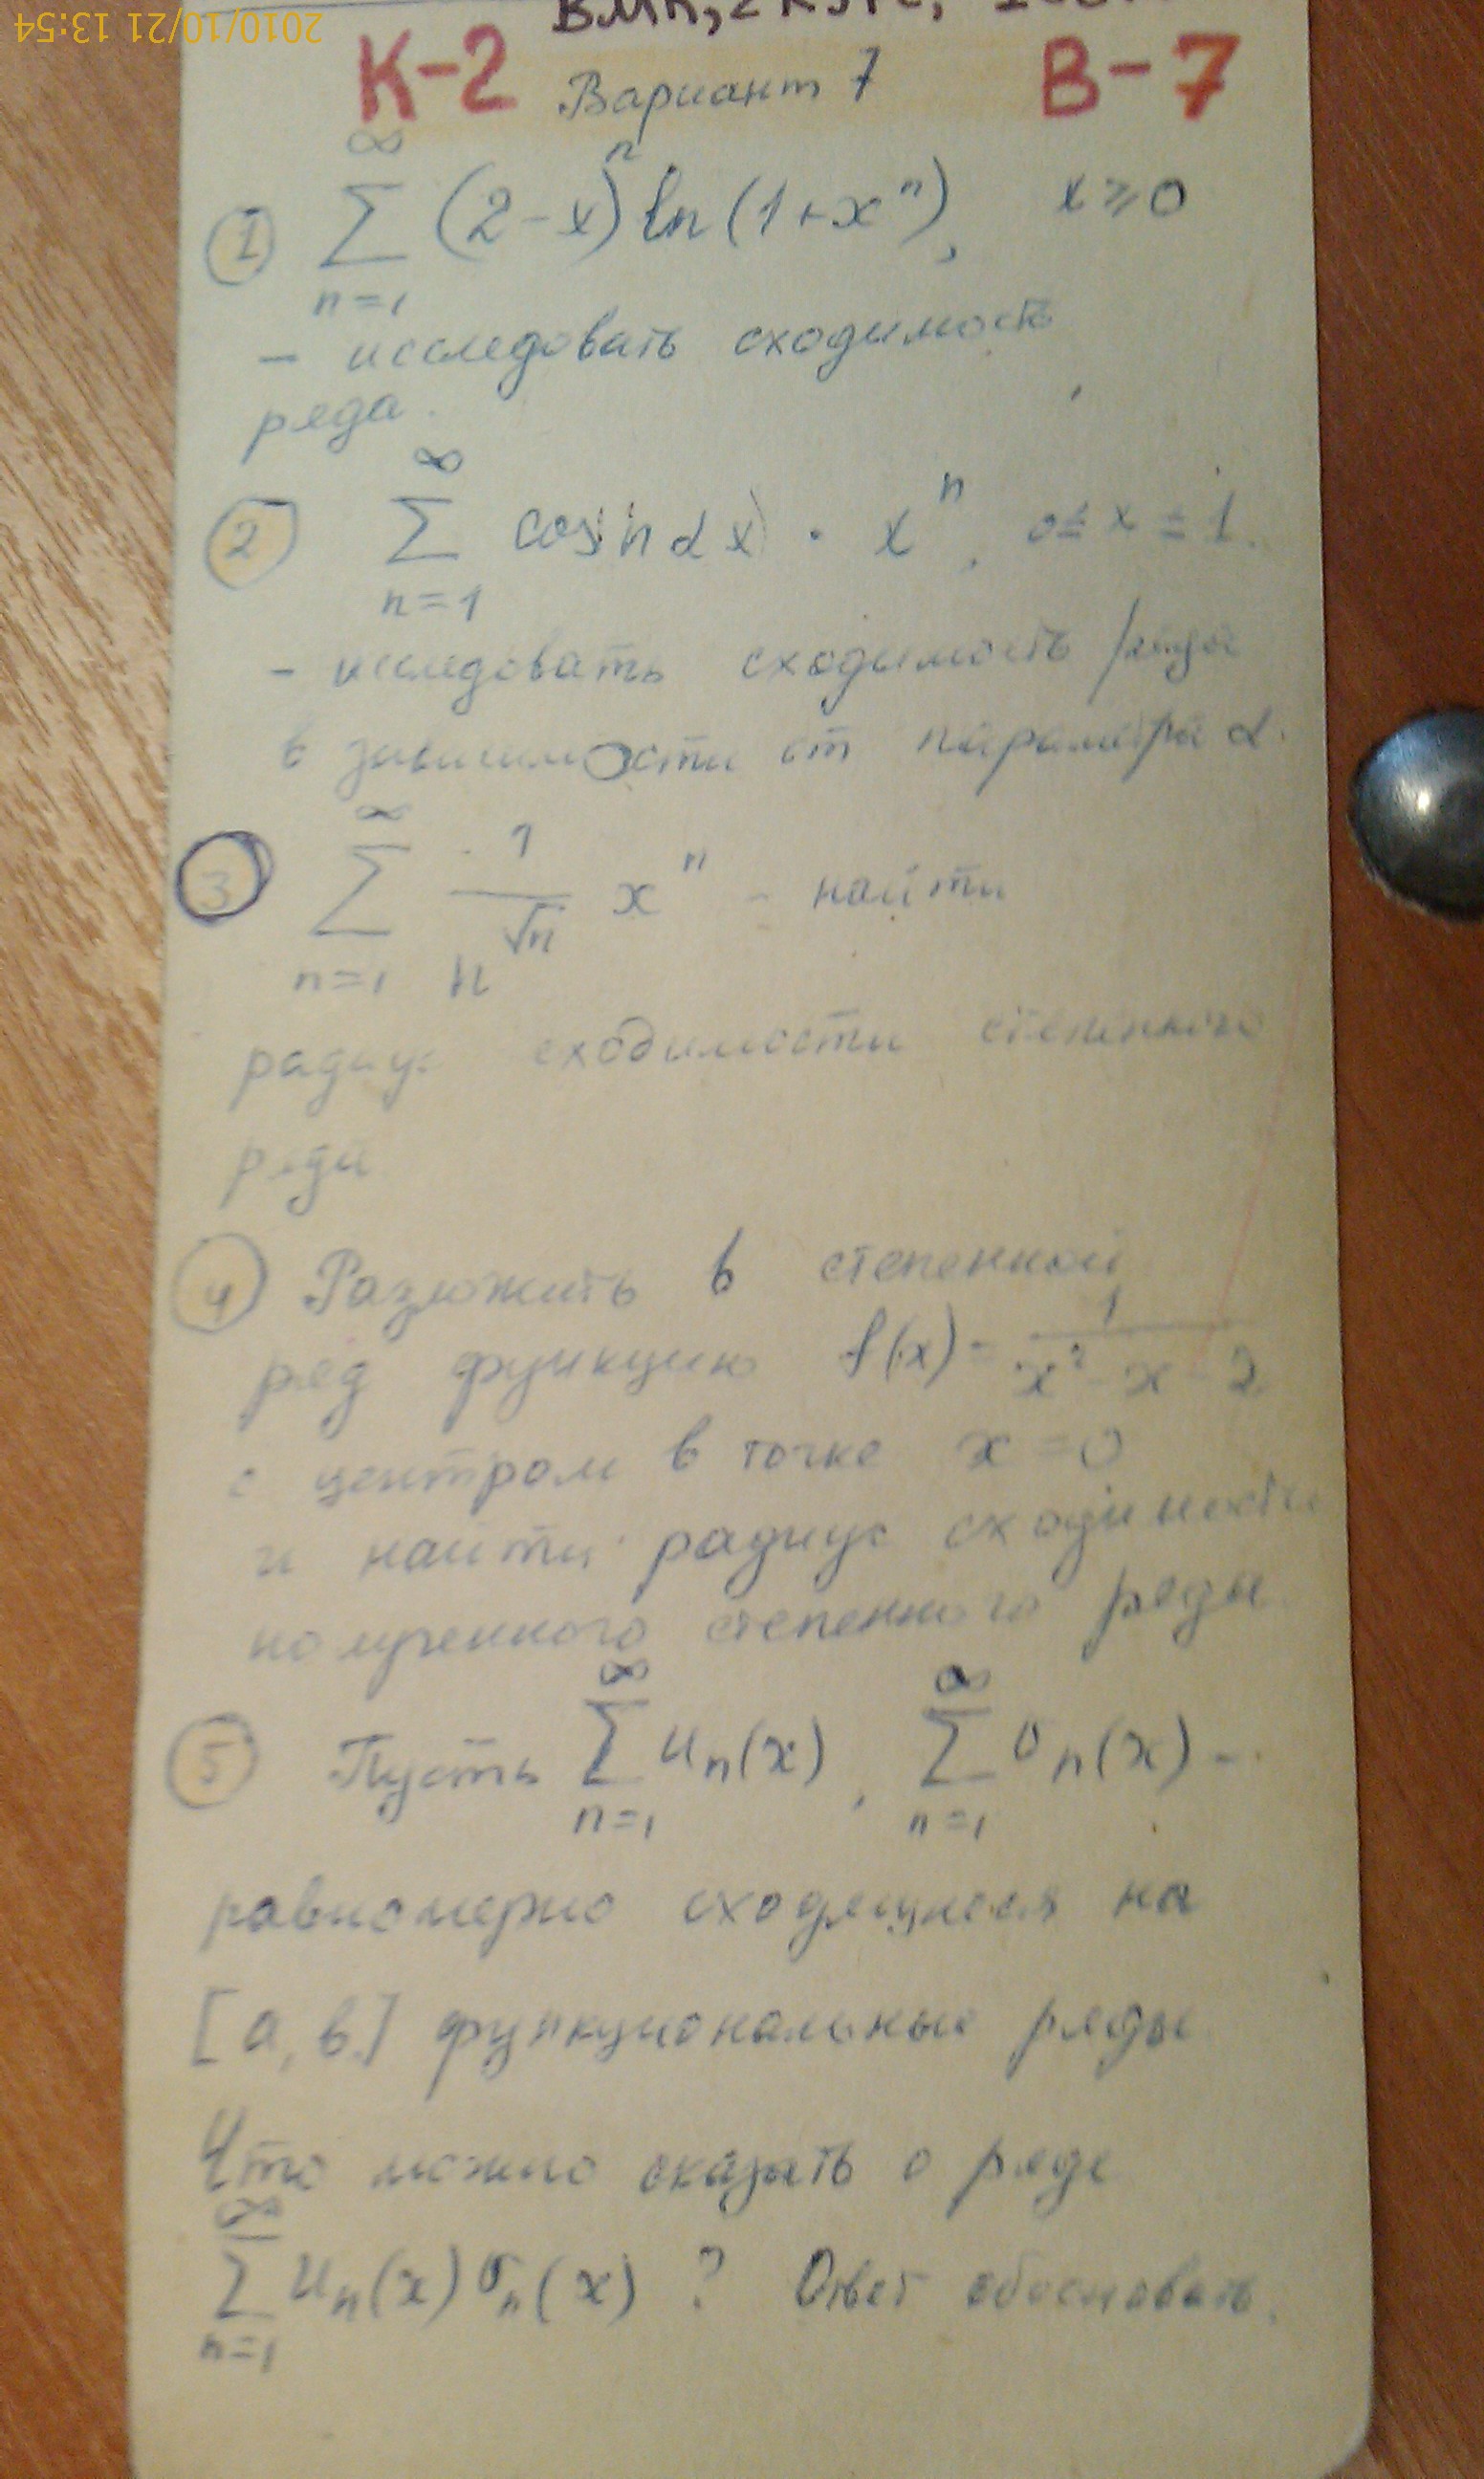 2010/10/21 13:54
ВМК, 2 курс,
К-2 Вариант 7 В-7
① ∞ ∑ n=1 (2-x)ⁿ ln(1+xⁿ), x ≥ 0
- исследовать сходимость
ряда.
② ∞ ∑ n=1 cos(nαx) · xⁿ, 0 ≤ x ≤ 1.
- исследовать сходимость ряда
в зависимости от параметра α.
③ ∞ ∑ n=1 1/n^√n xⁿ - найти
радиус сходимости степенного
ряда
④ Разложить в степенной
ряд функцию f(x) = 1/(x² - x - 2)
с центром в точке x = 0
и найти радиус сходимости
полученного степенного ряда
⑤ Пусть ∞ ∑ n=1 uₙ(x), ∞ ∑ n=1 vₙ(x) -
равномерно сходящиеся на
[a, b] функциональные ряды
Что можно сказать о ряде
∞ ∑ n=1 uₙ(x) vₙ(x) ? Ответ обосновать.